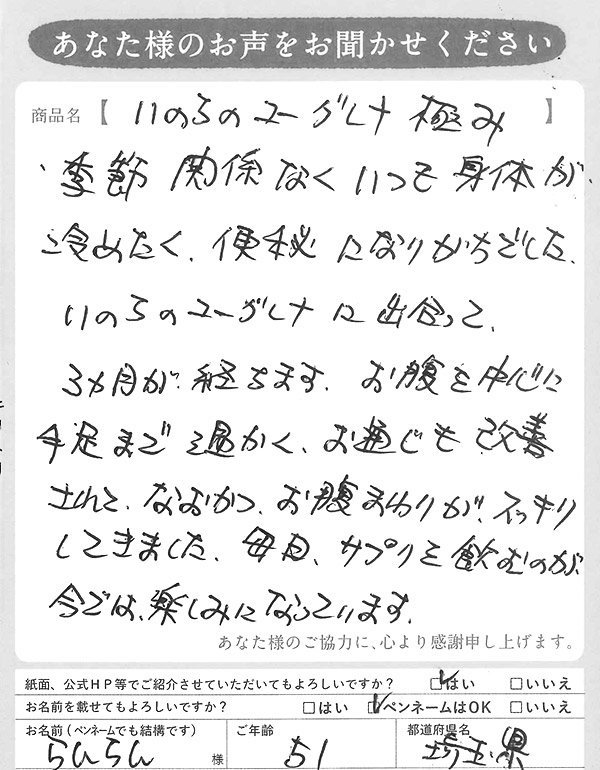 あなた様のお声をお聞かせください
商品名【 いのちのユーグレナ 極み 】
季節 関係なく いつも 身体が、
冷めたく、便秘 になりがちでした。
いのちのユーグレナ に 出会って、
3ヵ月が 経ちます。お腹を中心に
手足まで 温かく、お通じも 改善
されて、なおかつ、お腹まわりが、スッキリ
してきました。毎日、サプリを飲むのが、
今では、楽しみになっています。
あなた様のご協力に、心より感謝申し上げます。
紙面、公式HP等でご紹介させていただいてもよろしいですか? ☑はい □いいえ
お名前を載せてもよろしいですか? □はい ☑ペンネームはOK □いいえ
お名前(ペンネームでも結構です) ご年齢 都道府県名
らんらん 様 51 埼玉県